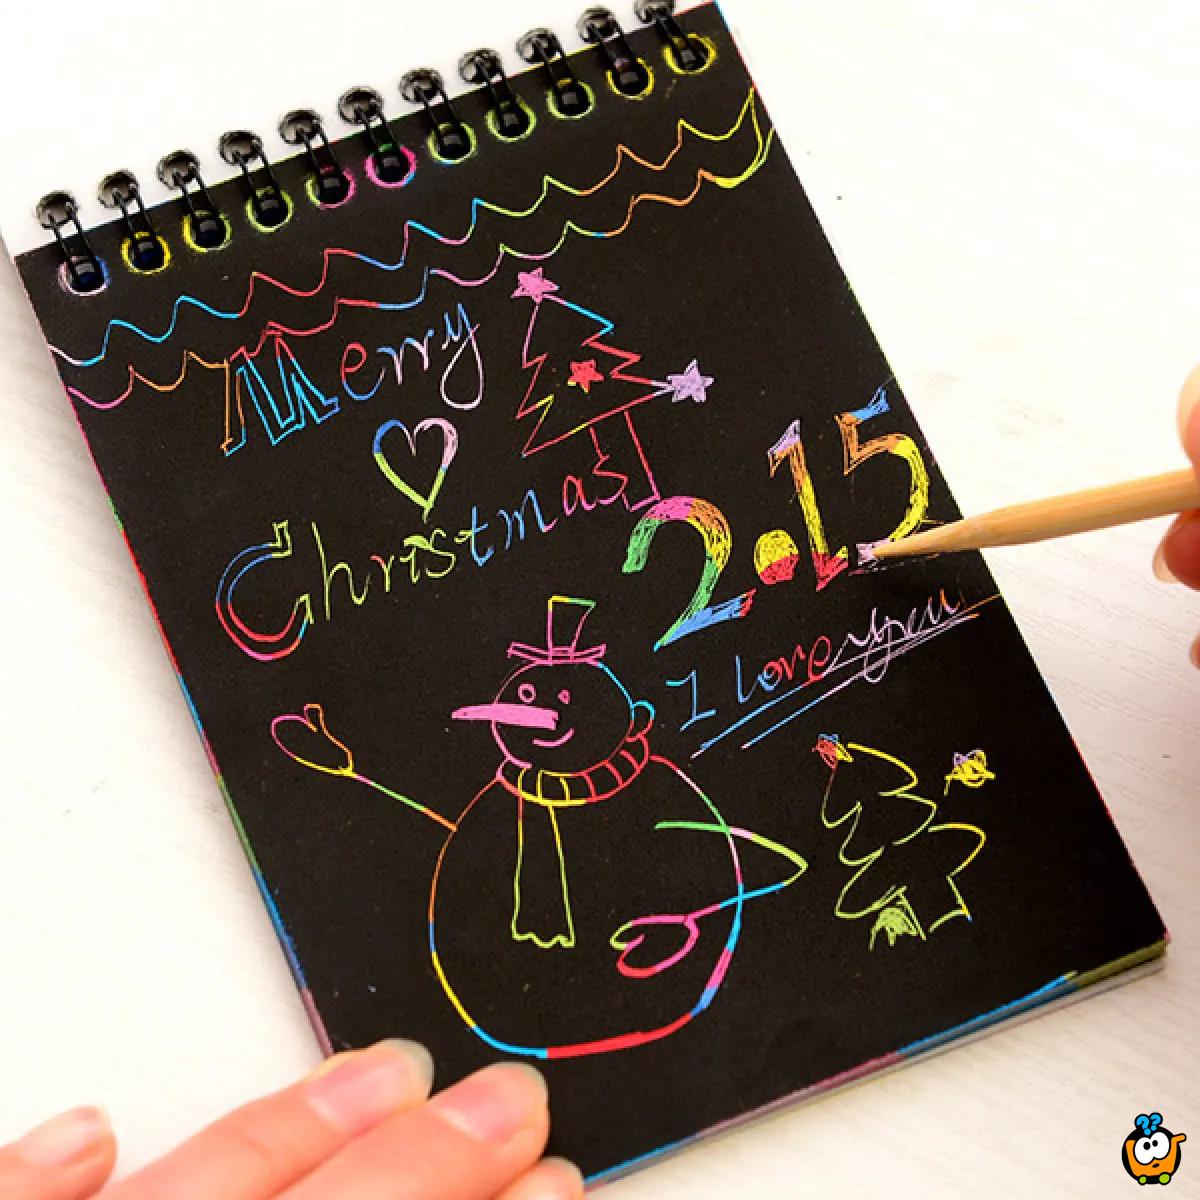 Merry
Christmas
2.15
I love you
??